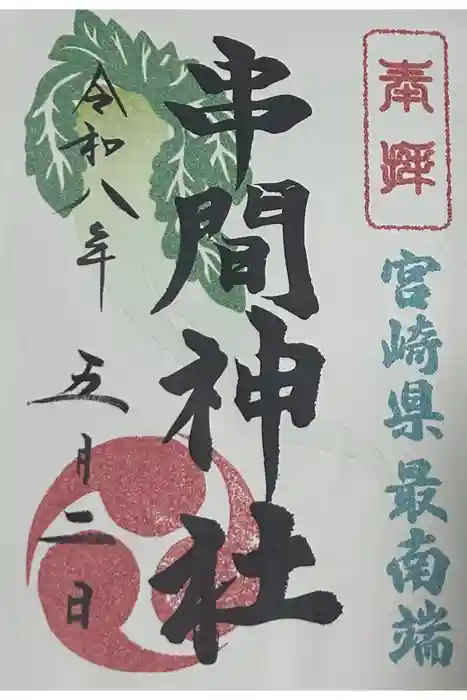 奉拝
宮崎県最南端
串間神社
令和八年
五月二日